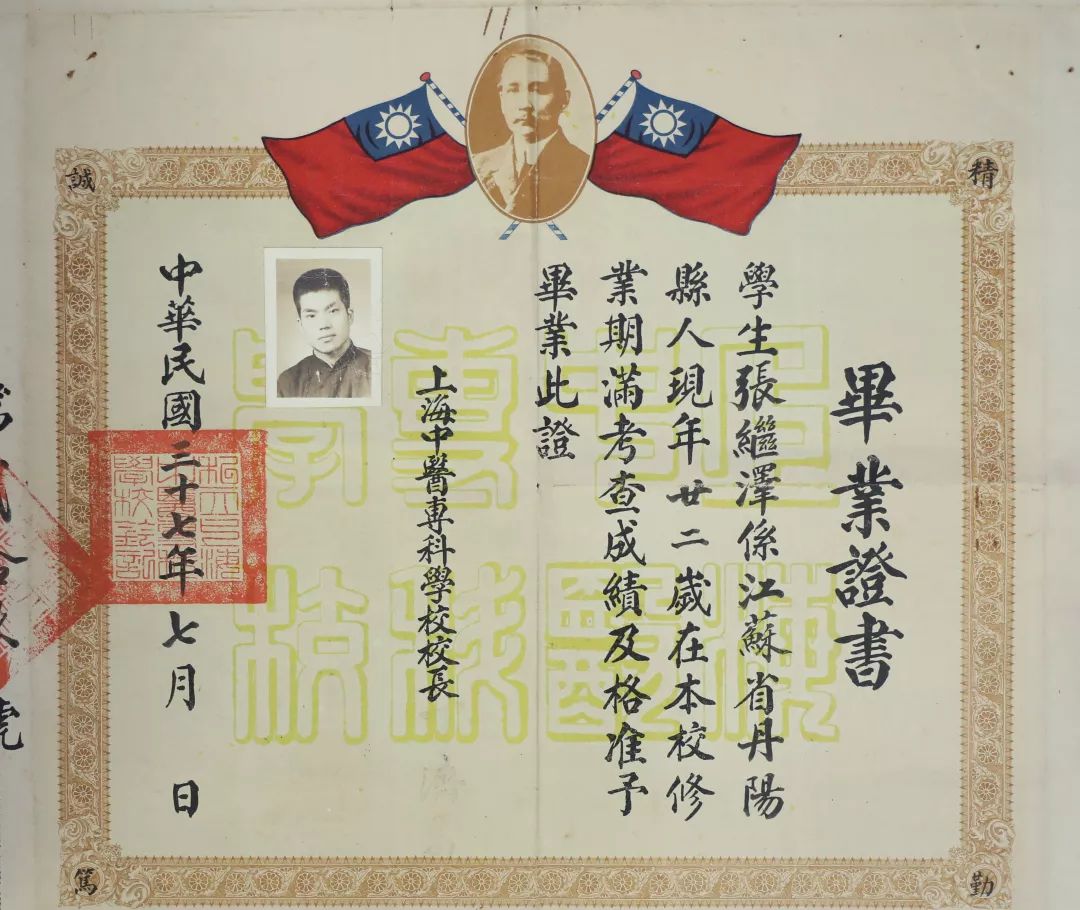 畢業證書
學生張繼澤係江蘇省丹陽
縣人現年廿二歲在本校修
業期滿考查成績及格准予
畢業此證
上海中醫專科學校校長
中華民國三十七年七月 日
精
勤
誠
篤
上海中醫專科學校
號